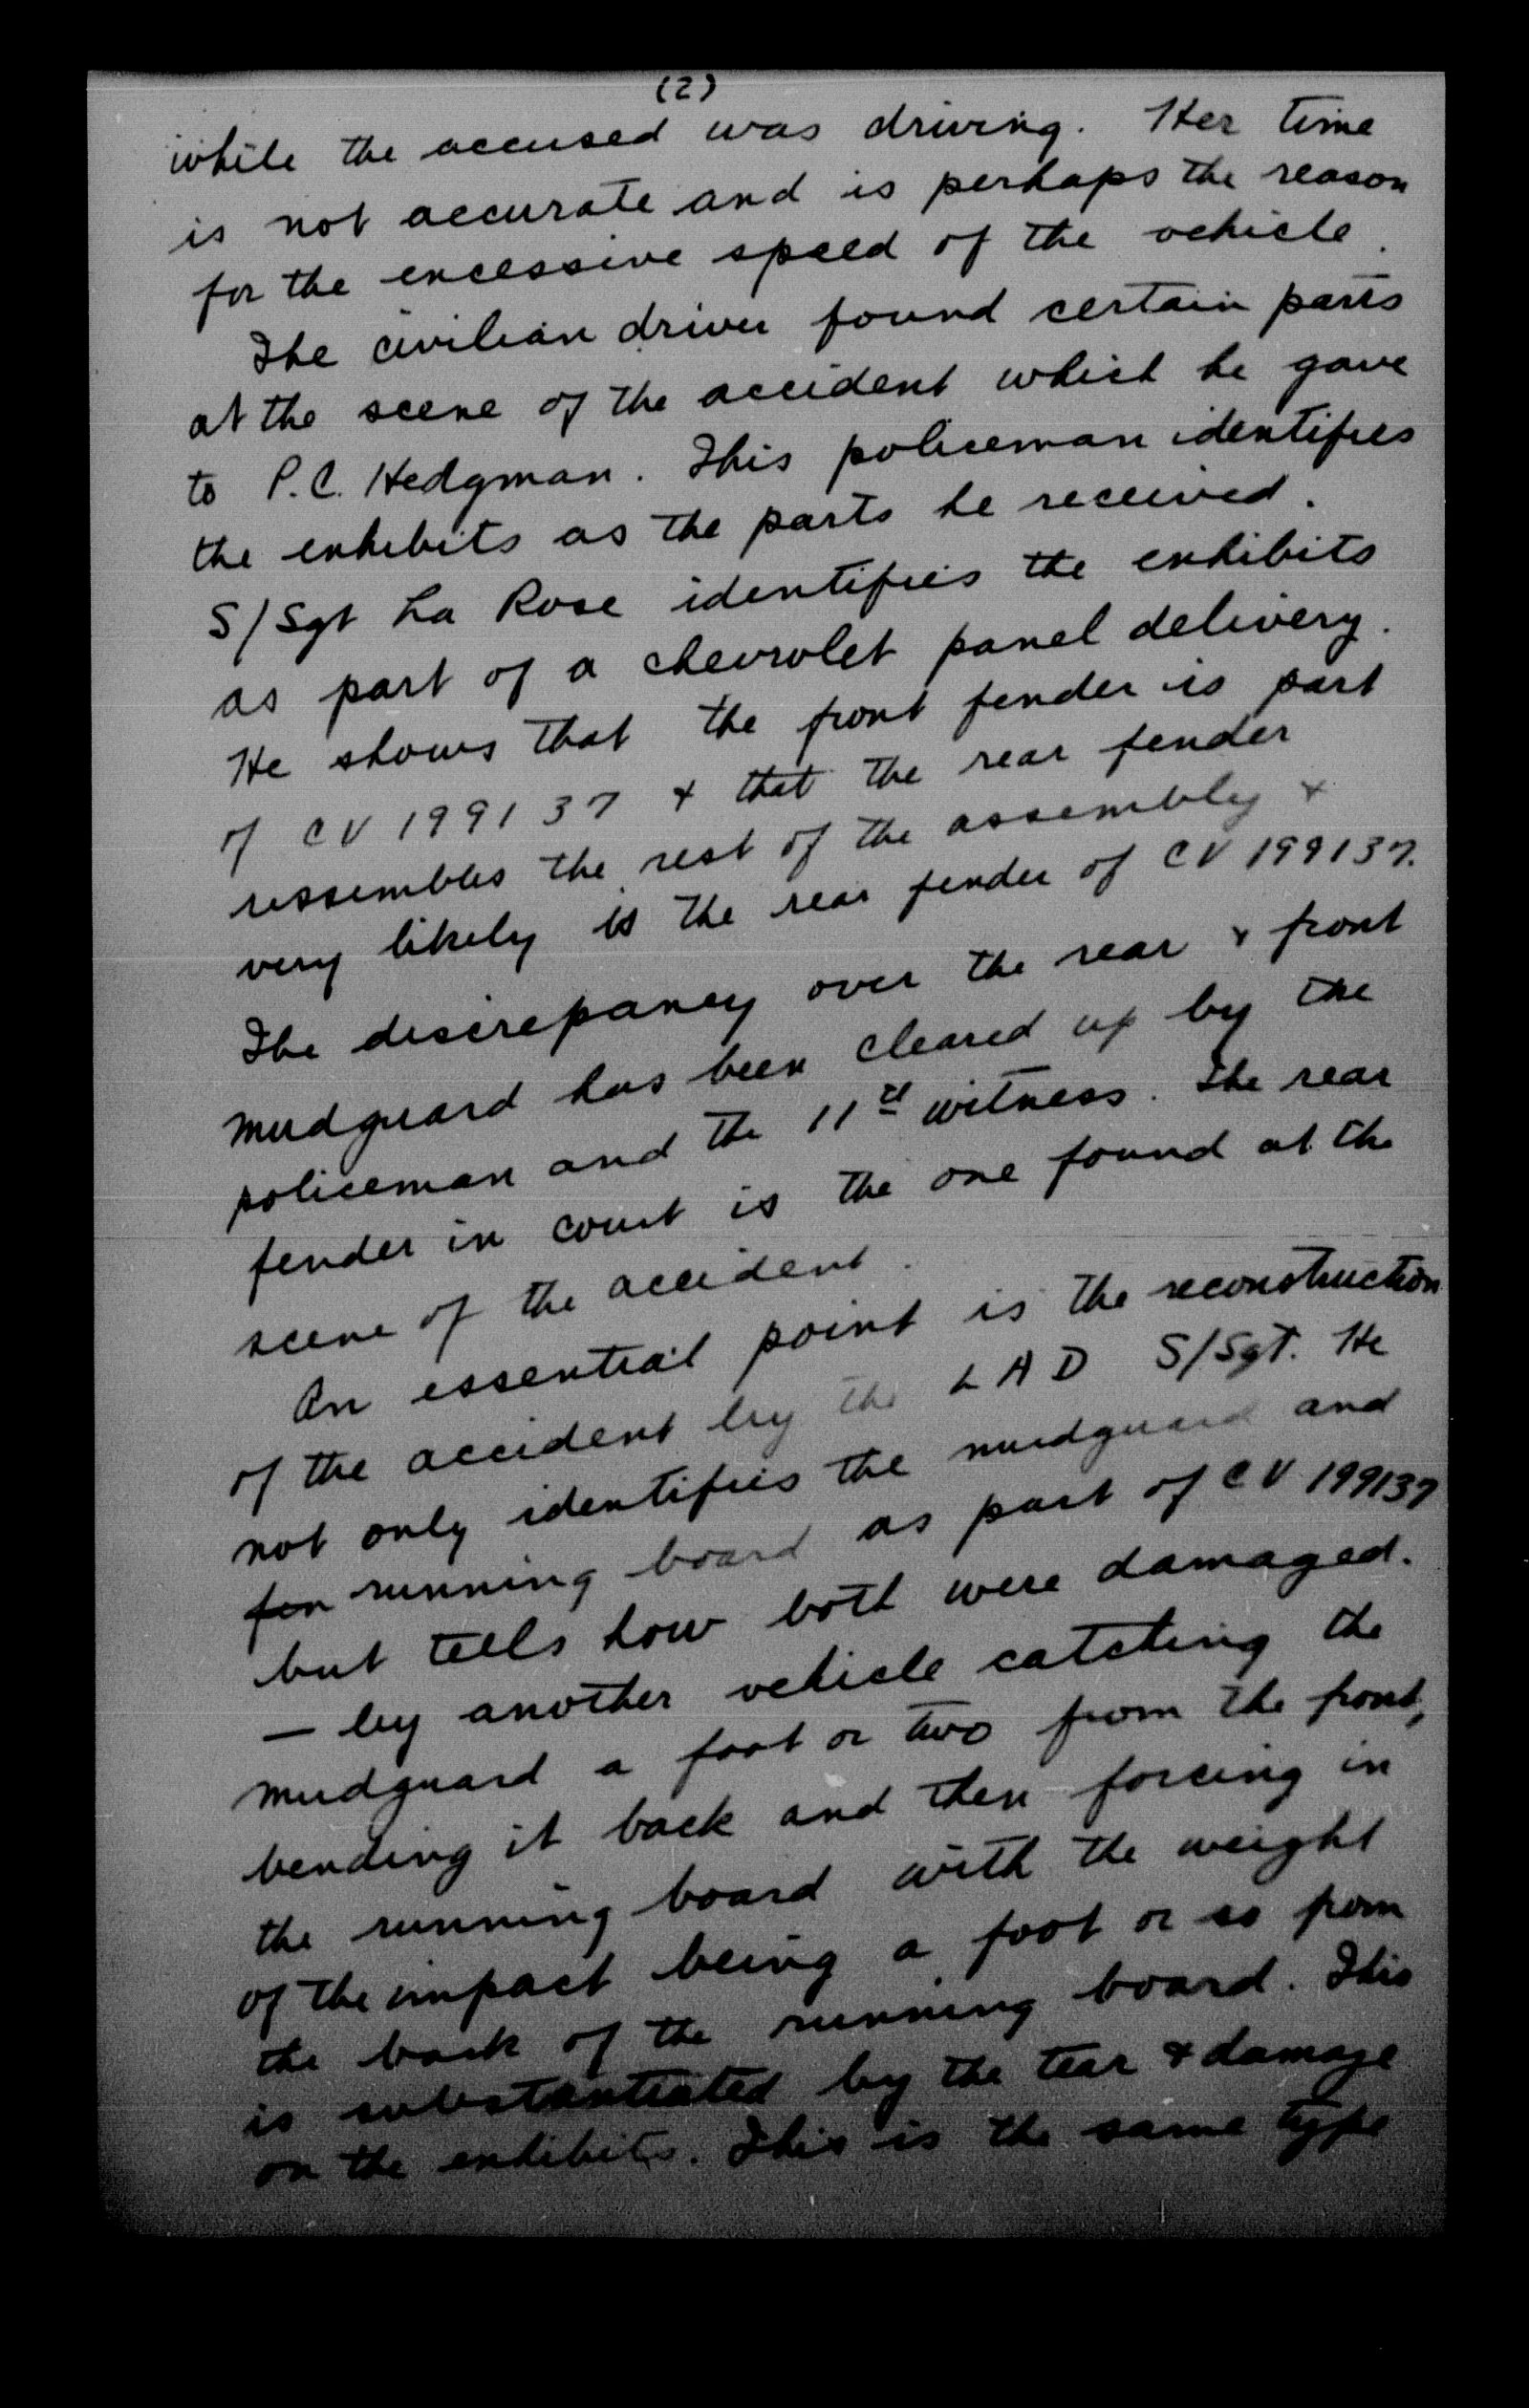 (2)
while the accused was driving. Her time
is not accurate and is perhaps the reason
for the excessive speed of the vehicle.
The civilian driver found certain parts
at the scene of the accident which he gave
to P.C. Hedgman. This policeman identifies
the exhibits as the parts he received.
S/Sgt La Rose identifies the exhibits
as part of a chevrolet panel delivery.
He shows that the front fender is part
of CV 199137 & that the rear fender
ressembles the rest of the assembly &
very likely is the rear fender of CV 199137.
The discrepancy over the rear & front
mudguard has been cleared up by the
policeman and the 11th witness. The rear
fender in court is the one found at the
scene of the accident.
An essential point is the reconstruction
of the accident by the LAD S/Sgt. He
not only identifies the mudguard and
running board as part of CV 199137
but tells how both were damaged.
— by another vehicle catching the
mudguard a foot or two from the front,
bending it back and then forcing in
the running board with the weight
of the impact being a foot or so from
the back of the running board. This
is substantiated by the tear & damage
on the exhibits. This is the same type